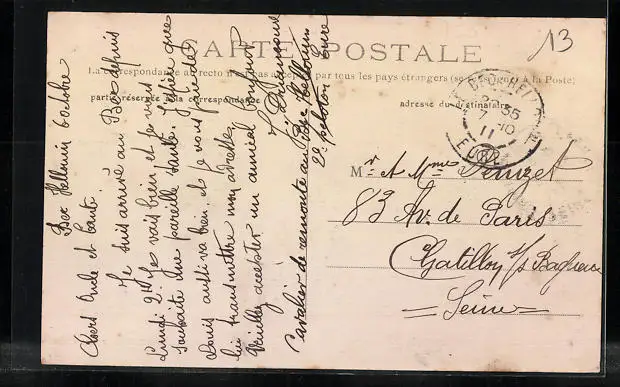 CARTE POSTALE
La correspondance au recto n'est pas acceptée par tous les pays étrangers (se renseigner à la Poste)
partie réservée à la correspondance
adresse du destinataire
13
35
7 - 10
11
EURE
Bec Hellouin 6 octobre
Chers Oncle et Tante.
Je suis arrivé au Bec depuis
Lundi 2. Je vais bien et je vous
souhaite une pareille santé. J'espère que
Louis aussi va bien, et je vous prie de
lui transmettre mon adresse.
Veuillez accepter un amical bonjour
Cavalier de remonte au Bec Hellouin
2e peloton Eure
Mr et Mme
83 Av. de Paris
Chatillon s/s Bagneux
= Seine =